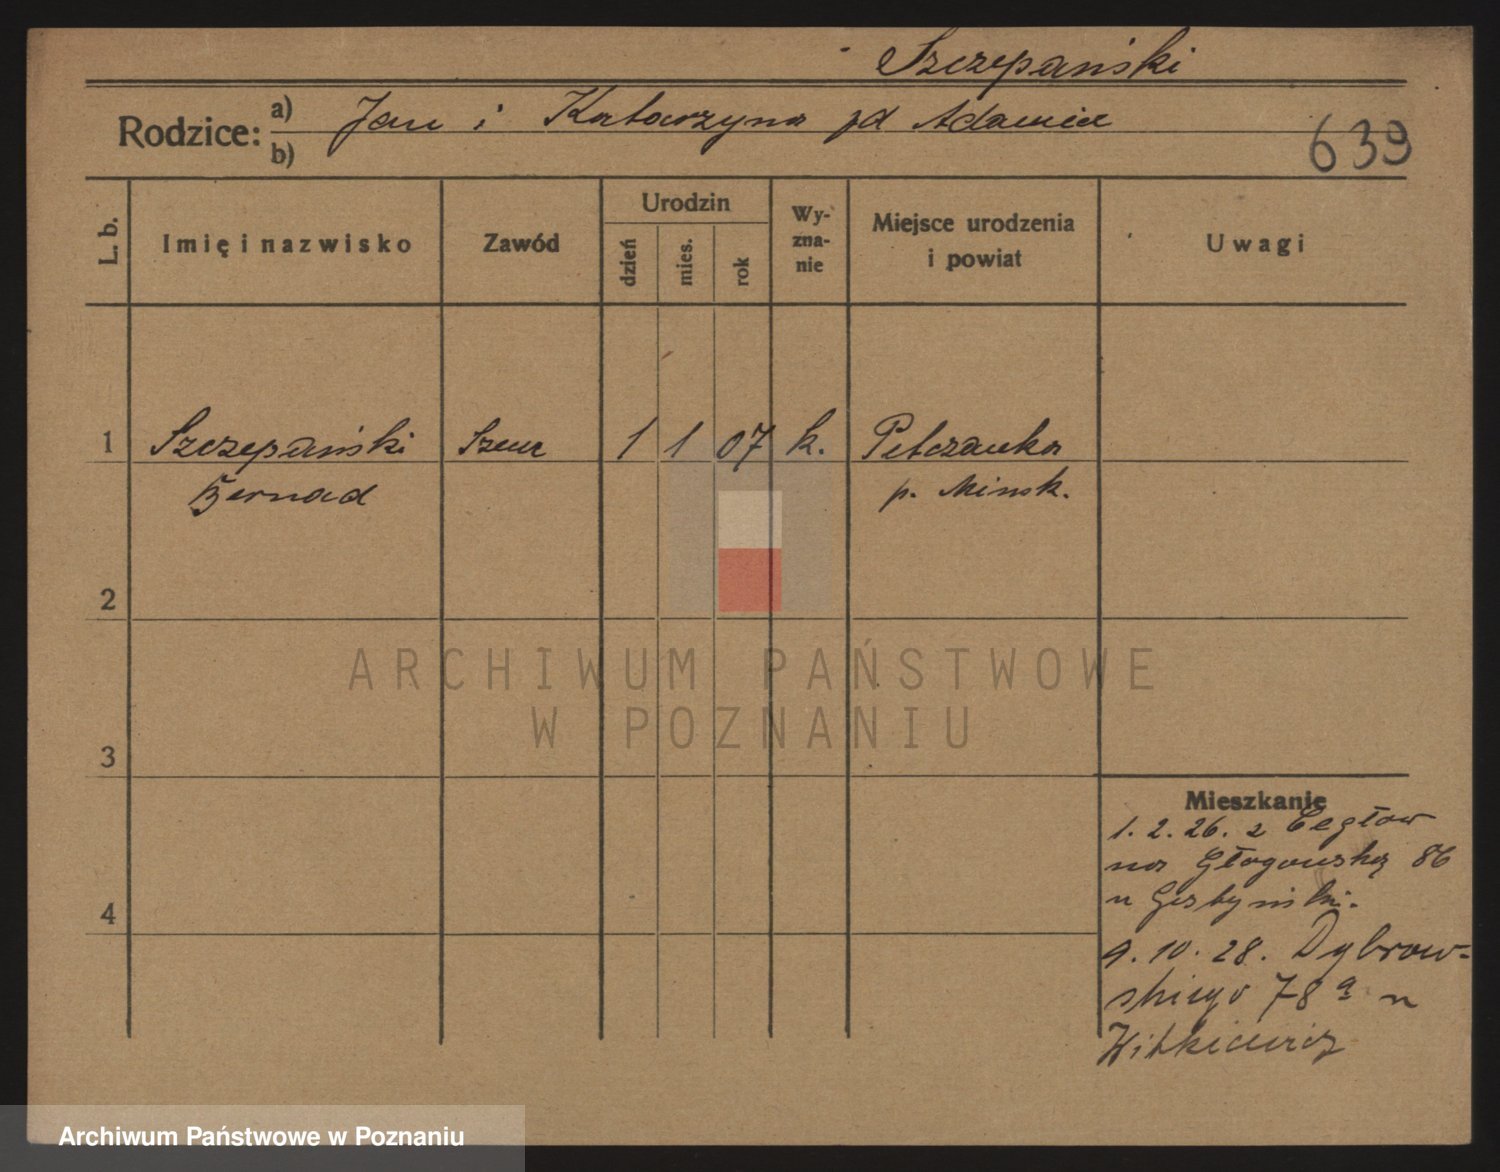 Szczepański
Rodzice: a) Jan i Katarzyna zd Adamiec
b)
639
L. b.
Imię i nazwisko
Zawód
Urodzin
dzień
mies.
rok
Wy-
zna-
nie
Miejsce urodzenia
i powiat
Uwagi
1 Szczepański Szewc 1 1 07 k. Pełczanka
Bernad p. Minsk.
2
3
4
Mieszkanie
1. 2. 26. z Cegłow
na Głogowską 86
u
9. 10. 28. Dąbrow-
skiego 78 a u
Witkiewicz
ARCHIWUM PAŃSTWOWE
W POZNANIU
Archiwum Państwowe w Poznaniu